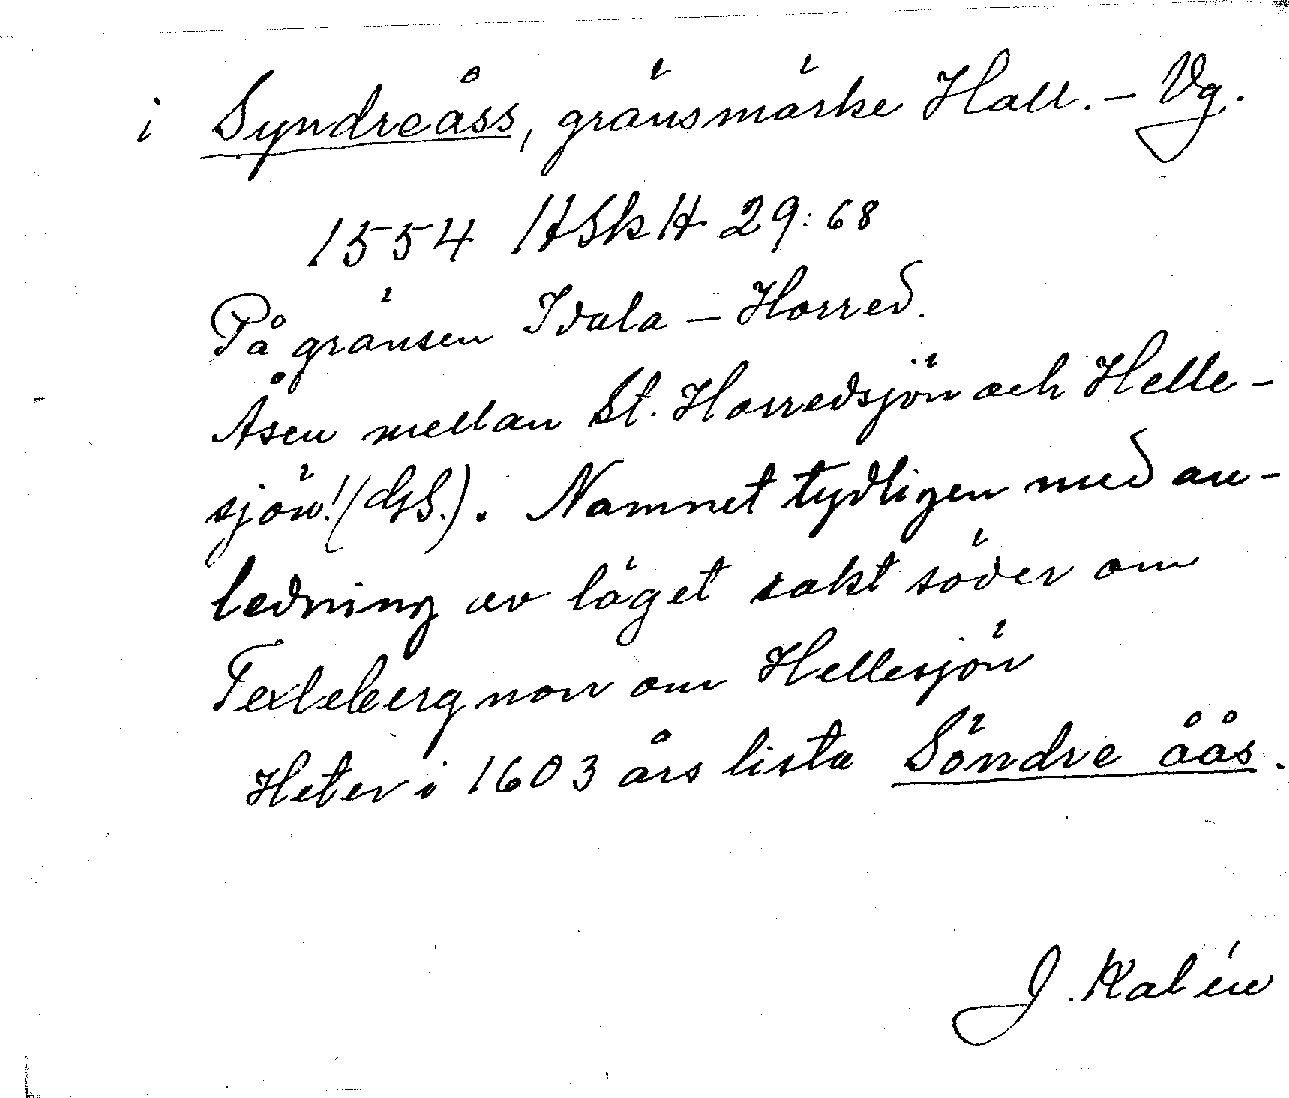 i Syndreåss, gränsmärke Hall. – Vg.
1554 HSkH 29:68
På gränsen Idala – Horred.
Åsen mellan St. Horredsjön och Helle-
sjön! (GS.). Namnet tydligen med an-
ledning av läget rakt söder om
Texleberg norr om Hellesjön
Heter i 1603 års lista Söndre åås.
J. Kalén